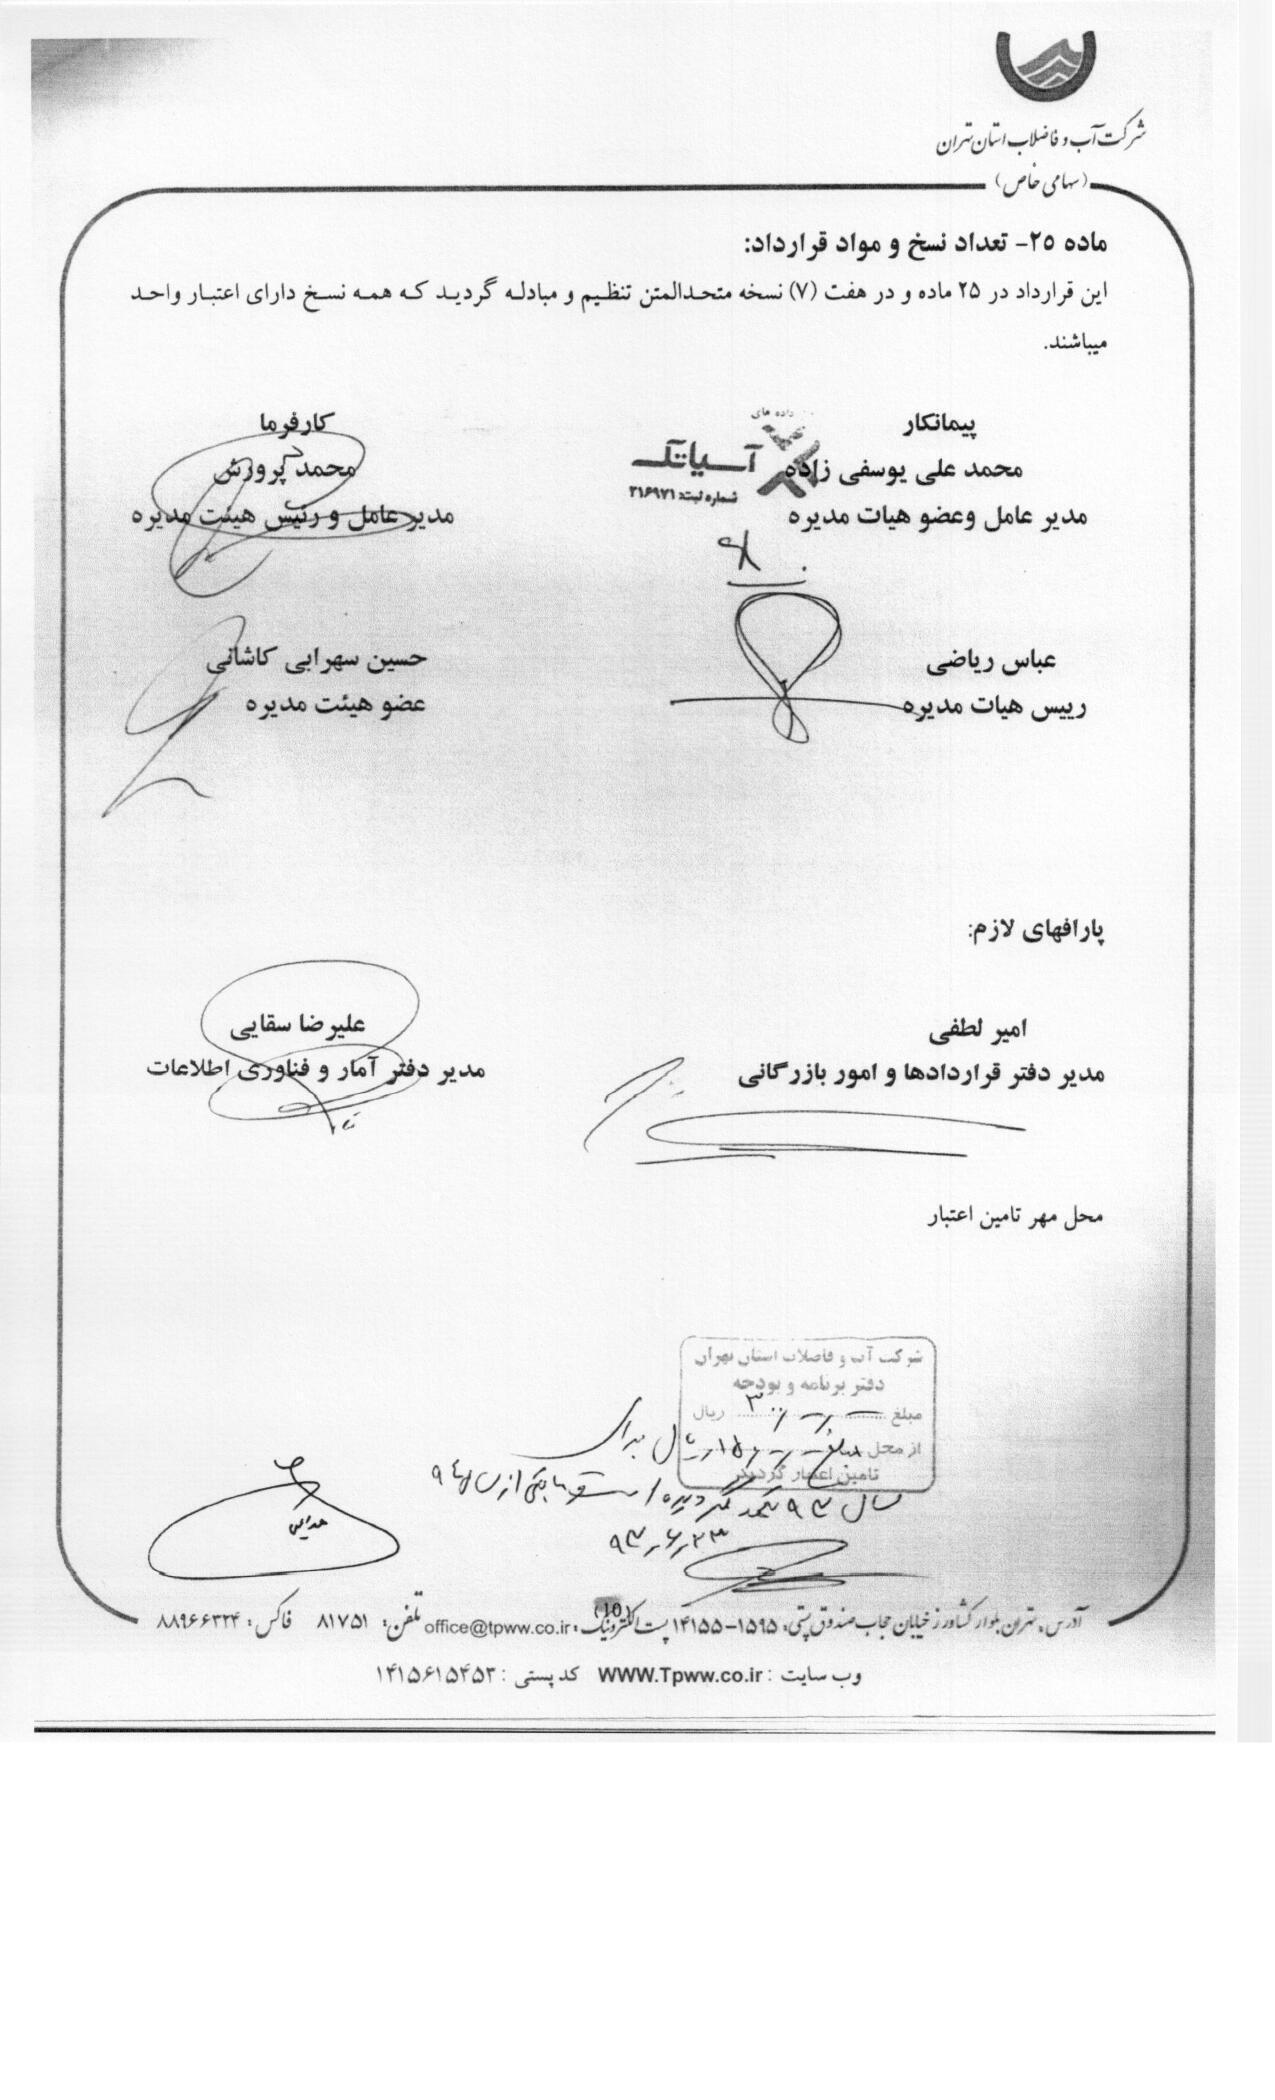 شرکت آب و فاضلاب استان تهران
(سهامی خاص)
ماده ۲۵- تعداد نسخ و مواد قرارداد:
این قرارداد در ۲۵ ماده و در هفت (۷) نسخه متحدالمتن تنظیم و مبادله گردید که همه نسخ دارای اعتبار واحد
میباشند.
پیمانکار
محمد علی یوسفی زاده
مدیر عامل وعضو هیات مدیره
داده های
آسیاتک
شماره ثبت: ۲۱۶۹۷۱
کارفرما
محمد پرورش
مدیر عامل و رئیس هیئت مدیره
عباس ریاضی
رییس هیات مدیره
حسین سهرابی کاشانی
عضو هیئت مدیره
پارافهای لازم:
امیر لطفی
مدیر دفتر قراردادها و امور بازرگانی
علیرضا سقایی
مدیر دفتر آمار و فناوری اطلاعات
محل مهر تامین اعتبار
شرکت آب و فاضلاب استان تهران
دفتر برنامه و بودجه
مبلغ ریال
از محل
تامین اعتبار گردید
۹۳/۶/۲۳
(10)
آدرس: تهران بلوار کشاورز خیابان حجاب صندوق پستی: ۱۵۹۵-۱۴۱۵۵ پست الکترونیک: office@tpww.co.ir تلفن: ۸۱۷۵۱ فاکس: ۸۸۹۶۶۳۲۴
وب سایت : WWW.Tpww.co.ir کد پستی : ۱۴۱۵۶۱۵۴۵۳